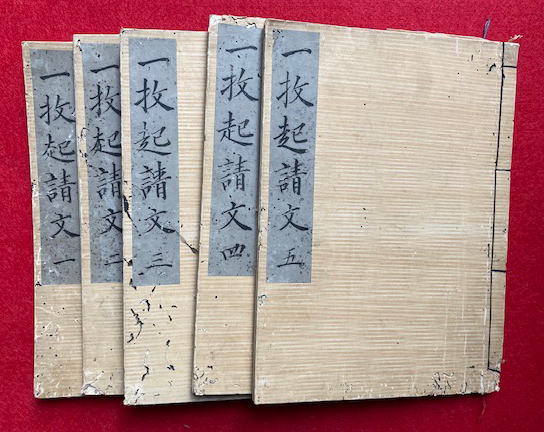 一枚起請文 一
一枚起請文 二
一枚起請文 三
一枚起請文 四
一枚起請文 五